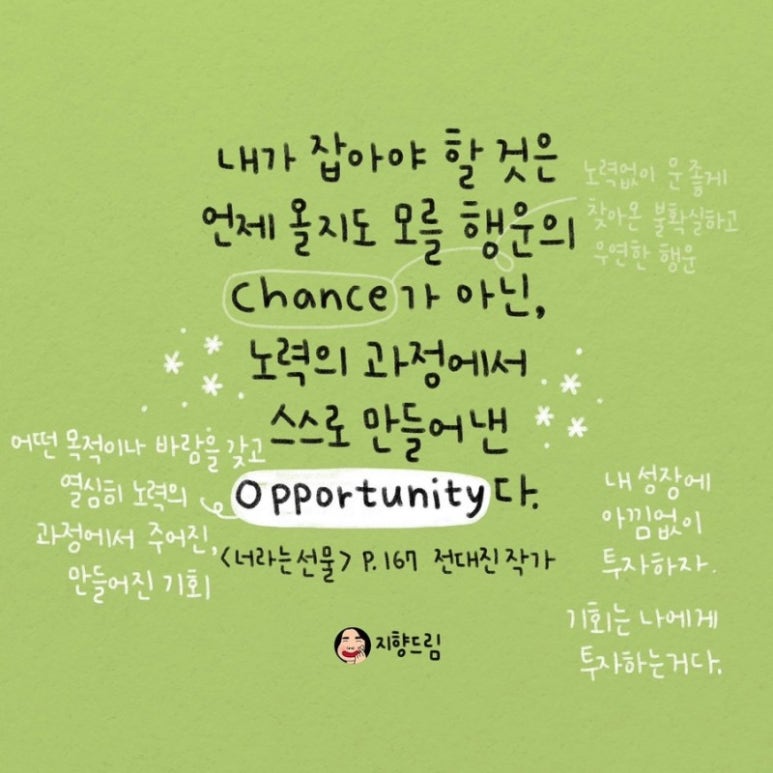 내가 잡아야 할 것은
언제 올지도 모를 행운의
Chance가 아닌,
노력없이 운 좋게
찾아온 불확실하고
우연한 행운
노력의 과정에서
스스로 만들어낸
Opportunity다.
어떤 목적이나 바람을 갖고
열심히 노력의
과정에서 주어진,
만들어진 기회
<너라는선물> P.167 전대진작가
내 성장에
아낌없이
투자하자.
기회는 나에게
투자하는거다.
지향드림